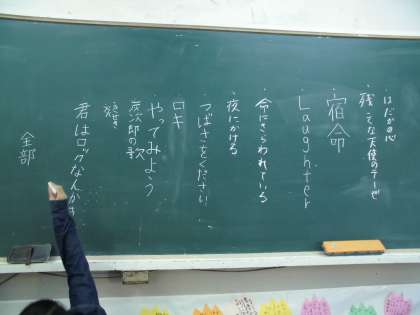 ・はだかの心
・残こくな天使のテーゼ
・宿命
・Laughter
・命にきらわれている
・夜にかける
・つばさをください
ロキ
・やってみよう
炭次郎の歌
君はロックなんか
全部